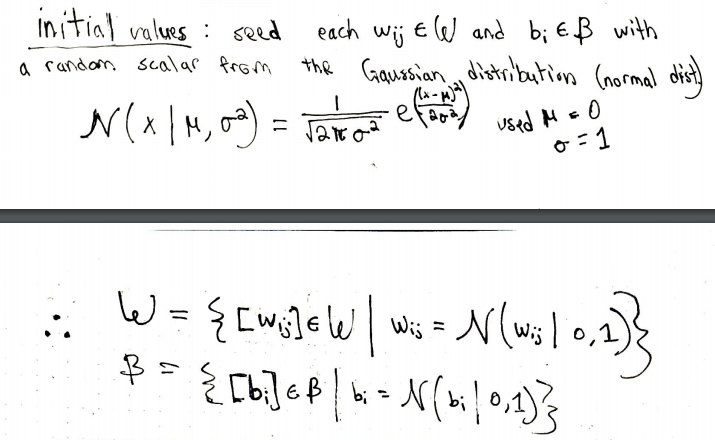 initial values : seed each wᵢⱼ ∈ W and bᵢ ∈ β with
a random scalar from the Gaussian distribution (normal dist)
N(x | μ, σ²) = 1/√(2πσ²) e^((x-μ)²/2σ²) used μ = 0
σ = 1
∴ W = {[wᵢⱼ] ∈ W | wᵢⱼ = N(wᵢⱼ | 0,1)}
β = {[bᵢ] ∈ β | bᵢ = N(bᵢ | 0,1)}